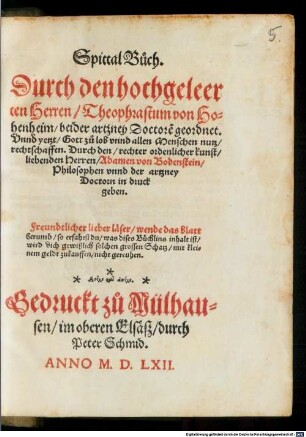 5.
Spittal Bůch.
Durch den hochgeleer
ten Herren / Theophrastum von Ho-
henheim / beider artzney Doctorē geordnet.
Vnnd yetzt / Gott zů lob vnnd allen Menschen nutz /
rechtschaffen. Durch den / rechter ordenlicher kunst /
liebenden Herren / Adamen von Bodenstein /
Philosophen vnnd der artzney
Doctorn in druck
geben.
Freundtlicher lieber läser / wende das blatt
herumb / so erfahrst du / was dises Bůchlins inhalt ist /
wird dich gewißlich solchen grossen Schatz / mit klei
nem geldt zůkauffen / nicht gerewhen.
Gedruckt zů Mülhau-
sen / im oberen Elsäsz / durch
Peter Schmid.
ANNO M. D. LXII.